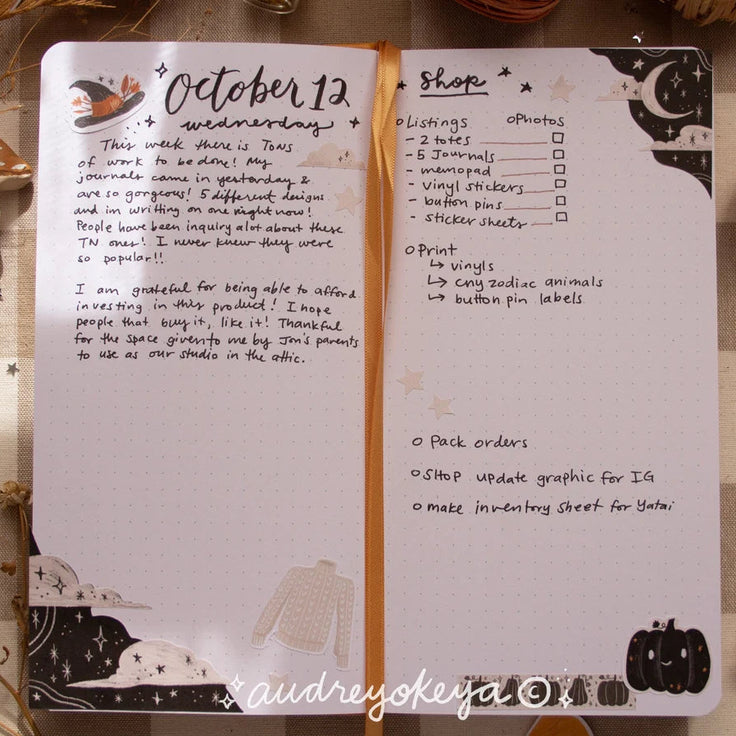 October 12
wednesday
This week there is TONS
of work to be done! My
journals came in yesterday &
are so gorgeous! 5 different designs
and im writing on one right now!
People have been inquiry alot about these
TN ones! I never knew they were
so popular!!
I am grateful for being able to afford
investing in this product! I hope
people that buy it, like it! Thankful
for the space given to me by Jon's parents
to use as our studio in the attic.
Shop
Listings Photos
- 2 totes
- 5 Journals
- memopad
- vinyl stickers
- button pins
- sticker sheets
Print
↳ vinyls
↳ cny zodiac animals
↳ button pin labels
Pack orders
SHOP update graphic for IG
make inventory sheet for Yatai
audreyokeya ©